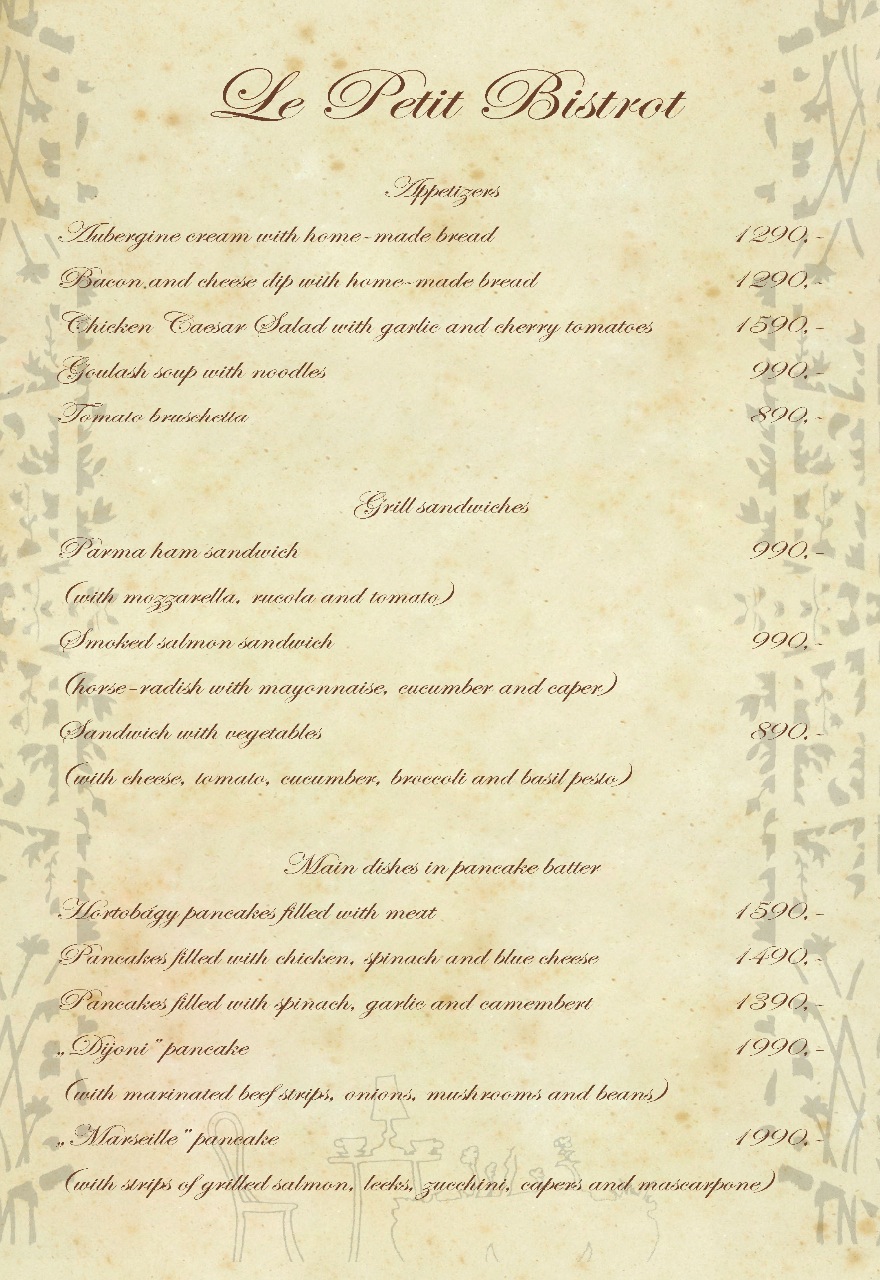 Le Petit Bistrot
Appetizers
Aubergine cream with home-made bread 1290.-
Bacon and cheese dip with home-made bread 1290.-
Chicken Caesar Salad with garlic and cherry tomatoes 1590.-
Goulash soup with noodles 990.-
Tomato bruschetta 890.-
Grill sandwiches
Parma ham sandwich 990.-
(with mozzarella, rucola and tomato)
Smoked salmon sandwich 990.-
(horse-radish with mayonnaise, cucumber and caper)
Sandwich with vegetables 890.-
(with cheese, tomato, cucumber, broccoli and basil pesto)
Main dishes in pancake batter
Hortobágy pancakes filled with meat 1590.-
Pancakes filled with chicken, spinach and blue cheese 1490.-
Pancakes filled with spinach, garlic and camembert 1390.-
„Dijoni” pancake 1990.-
(with marinated beef strips, onions, mushrooms and beans)
„Marseille” pancake 1990.-
(with strips of grilled salmon, leeks, zucchini, capers and mascarpone)